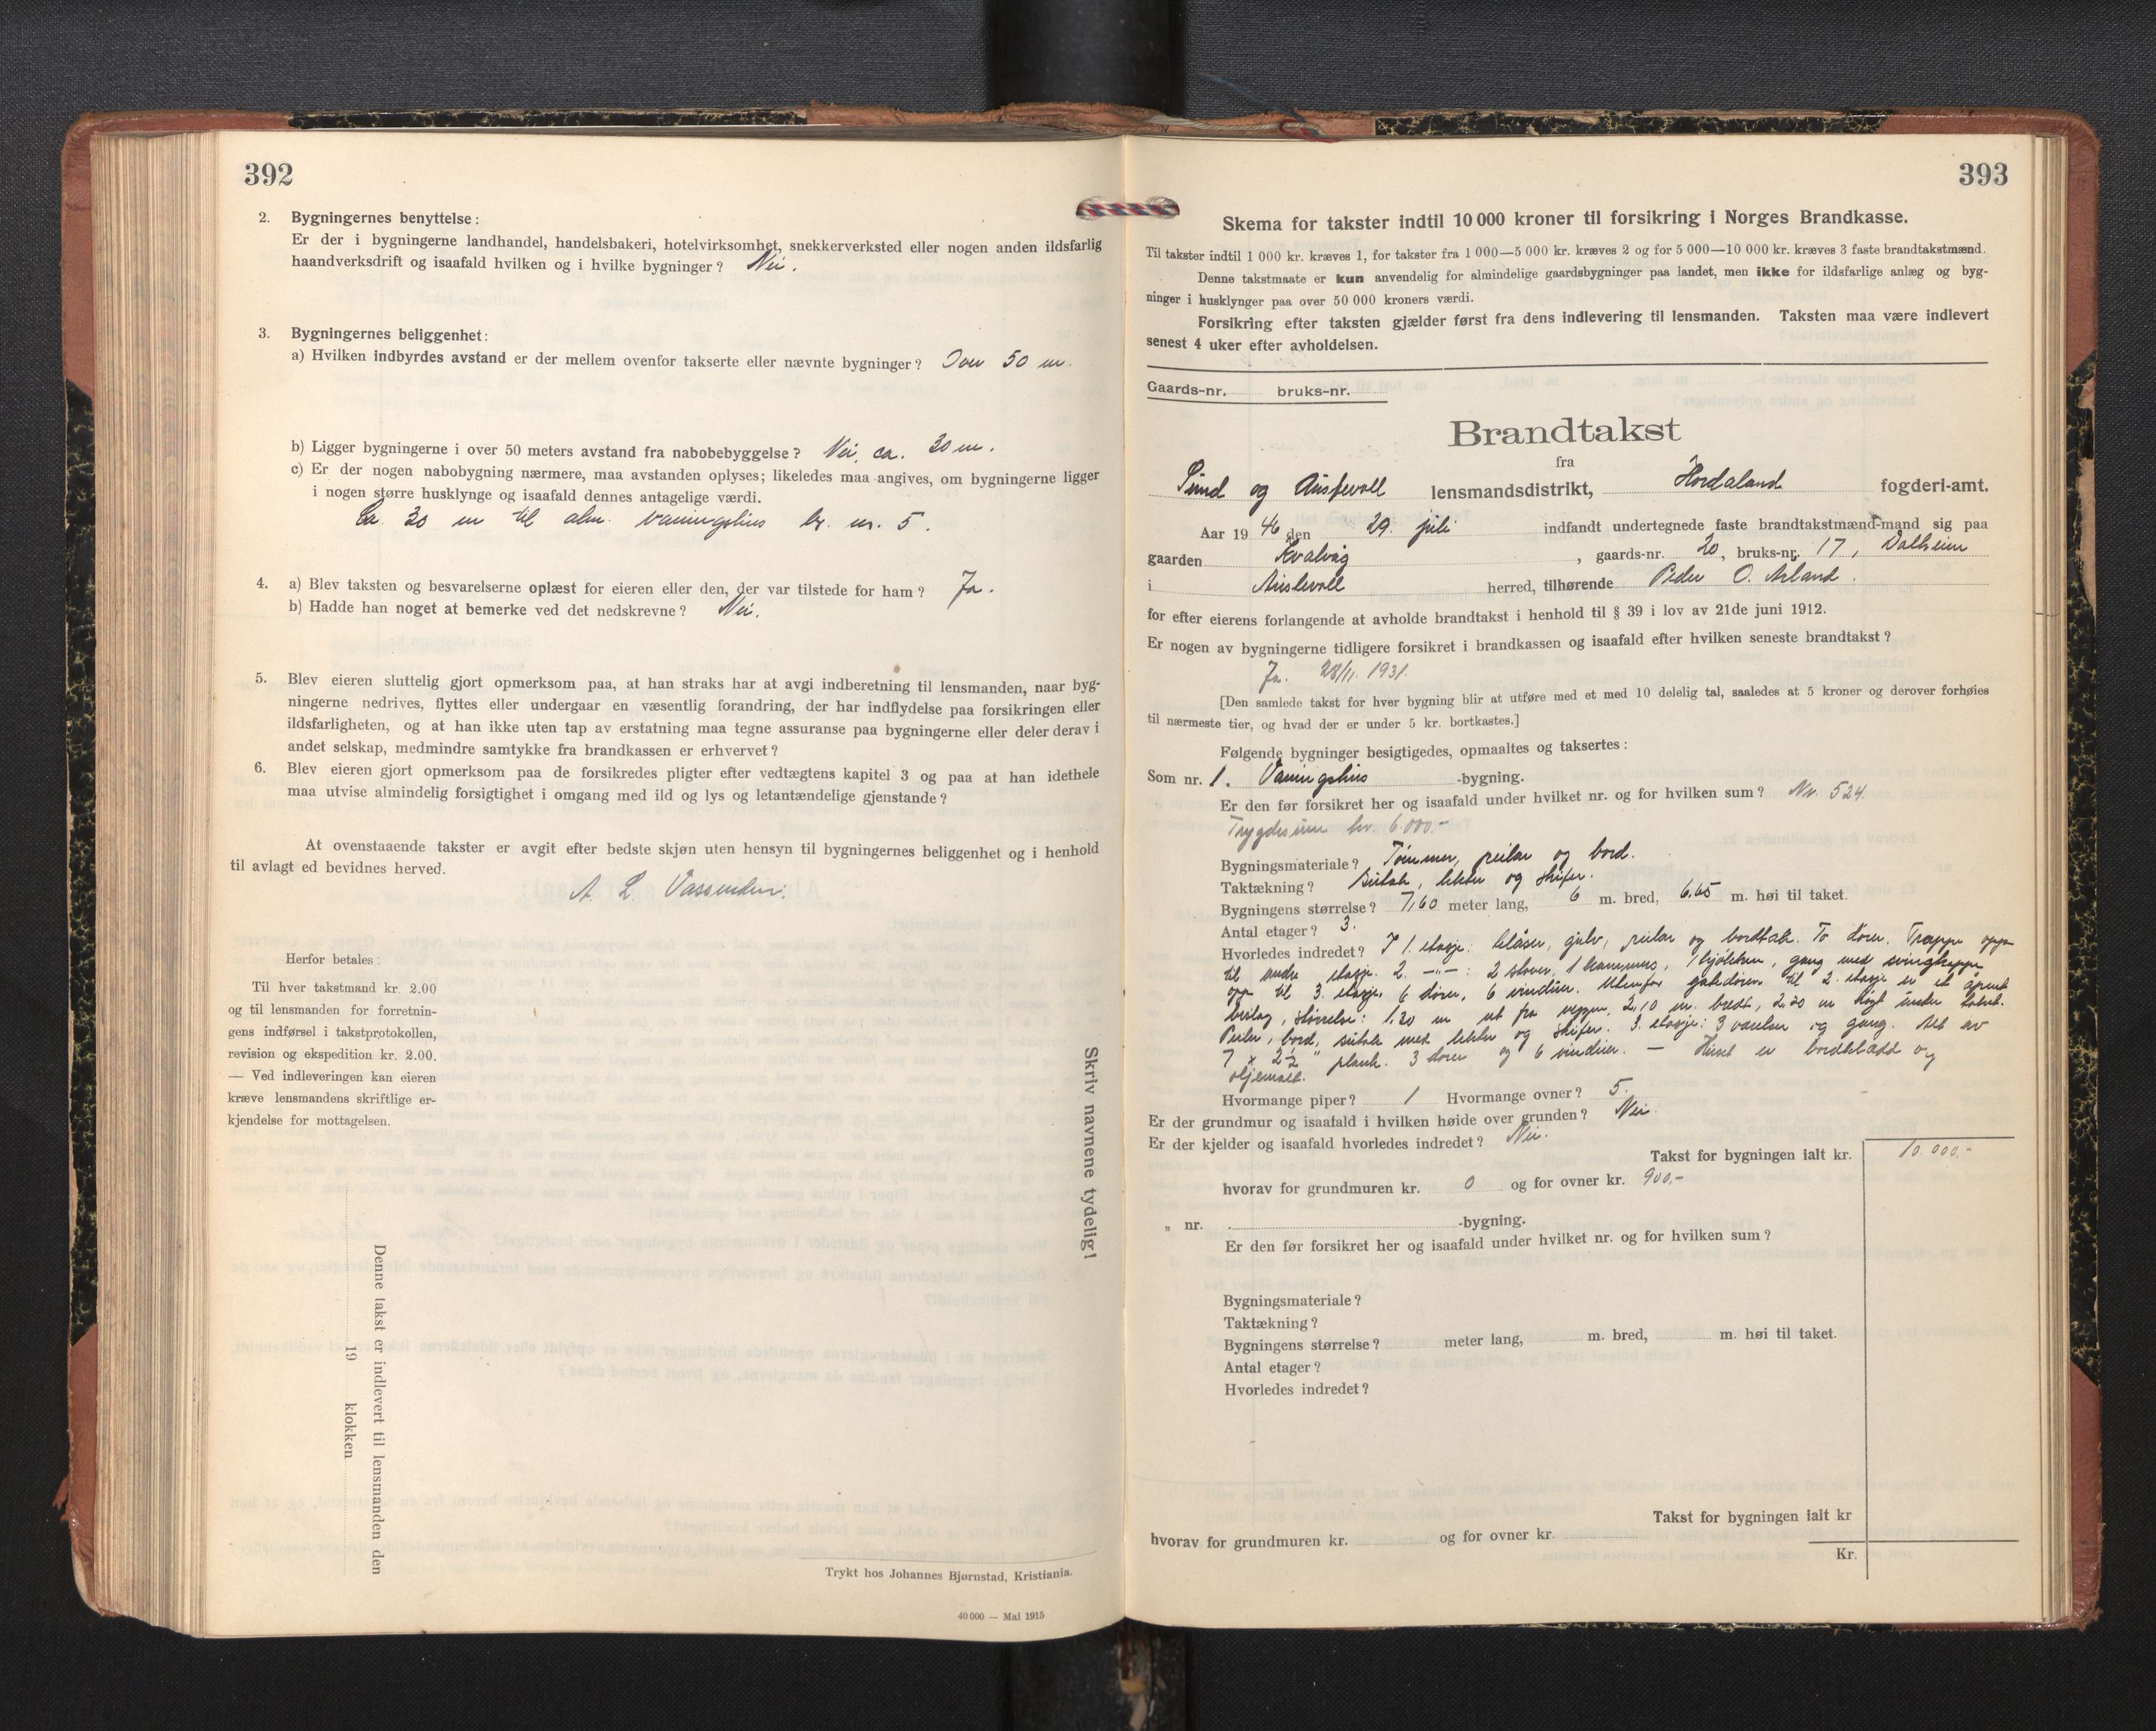 392
2. Bygningernes benyttelse:
Er der i bygningerne landhandel, handelsbakeri, hotelvirksomhet, snekkerverksted eller nogen anden ildsfarlig
haandverksdrift og isaafald hvilken og i hvilke bygninger? Nei.
3. Bygningernes beliggenhet:
a) Hvilken indbyrdes avstand er der mellem ovenfor takserte eller nævnte bygninger? Over 50 m.
b) Ligger bygningerne i over 50 meters avstand fra nabobebyggelse? Nei, ca. 30 m.
c) Er der nogen nabobygning nærmere, maa avstanden oplyses; likeledes maa angives, om bygningerne ligger
i nogen større husklynge og isaafald dennes antagelige værdi.
Ca. 30 m til alm. vaaningshus br. nr. 5.
4. a) Blev taksten og besvarelserne oplæst for eieren eller den, der var tilstede for ham? Ja.
b) Hadde han noget at bemerke ved det nedskrevne? Nei.
5. Blev eieren sluttelig gjort opmerksom paa, at han straks har at avgi indberetning til lensmanden, naar byg-
ningerne nedrives, flyttes eller undergaar en væsentlig forandring, der har indflydelse paa forsikringen eller
ildsfarligheten, og at han ikke uten tap av erstatning maa tegne assuranse paa bygningerne eller deler derav i
andet selskap, medmindre samtykke fra brandkassen er erhvervet?
6. Blev eieren gjort opmerksom paa de forsikredes pligter efter vedtægtens kapitel 3 og paa at han idethele
maa utvise almindelig forsigtighet i omgang med ild og lys og letantændelige gjenstande?
At ovenstaaende takster er avgit efter bedste skjøn uten hensyn til bygningernes beliggenhet og i henhold
til avlagt ed bevidnes herved.
A. L. Vassenden.
Herfor betales:
Til hver takstmand kr. 2.00
og til lensmanden for forretnin-
gens indførsel i takstprotokollen,
revision og ekspedition kr. 2.00.
— Ved indleveringen kan eieren
kræve lensmandens skriftlige er-
kjendelse for mottagelsen.
Skriv navnene tydelig!
Denne takst er indlevert til lensmanden den
19 klokken
Trykt hos Johannes Bjørnstad, Kristiania.
40 000 — Mai 1915
393
Skema for takster indtil 10 000 kroner til forsikring i Norges Brandkasse.
Til takster indtil 1 000 kr. kræves 1, for takster fra 1 000—5 000 kr. kræves 2 og for 5 000—10 000 kr. kræves 3 faste brandtakstmænd.
Denne takstmaate er kun anvendelig for almindelige gaardsbygninger paa landet, men ikke for ildsfarlige anlæg og byg-
ninger i husklynger paa over 50 000 kroners værdi.
Forsikring efter taksten gjælder først fra dens indlevering til lensmanden. Taksten maa være indlevert
senest 4 uker efter avholdelsen.
Gaards-nr. bruks-nr.
Brandtakst
fra
Sund og Austevoll lensmandsdistrikt, Hordaland fogderi-amt.
Aar 1946 den 29. juli indfandt undertegnede faste brandtakstmænd-mand sig paa
gaarden Kvalvåg, gaards-nr. 20, bruks-nr. 17, Dalheim
i Austevoll herred, tilhørende Peder O. Årland.
for efter eierens forlangende at avholde brandtakst i henhold til § 39 i lov av 21de juni 1912.
Er nogen av bygningerne tidligere forsikret i brandkassen og isaafald efter hvilken seneste brandtakst?
Ja. 28/11. 1931.
[Den samlede takst for hver bygning blir at utføre med et med 10 delelig tal, saaledes at 5 kroner og derover forhøies
til nærmeste tier, og hvad der er under 5 kr. bortkastes.]
Følgende bygninger besigtigedes, opmaaltes og taksertes:
Som nr. 1. Våningshus -bygning.
Er den før forsikret her og isaafald under hvilket nr. og for hvilken sum? Nr. 524.
Trygdesum kr. 6.000.-
Bygningsmateriale? Tømmer, peilar og bord.
Taktækning? Sutak, lekter og skifer.
Bygningens størrelse? 7,60 meter lang, 6 m. bred, 6,65 m. høi til taket.
Antal etager? 3.
Hvorledes indredet? I 1. etasje: golv, peilar og bordtak. To dører. Trappe opp
til andre etasje. 2. -"-: 2 stover, 1 kammers, 1 kjøkken, gang med svingtrappe
opp til 3. etasje. 6 dører, 6 vinduer. Utenfor gatedøren til 2. etasje er et åpent
bislag, størrelse: 1,20 m ut fra veggen, 2,10 m. bredt, 2,20 m høgt under taket.
Peiler, bord, sutak med lekter og skifer. 3. etasje: 3 værelser og gang. Alt av
7 x 2½ " plank. 3 dører og 6 vinduer. — Huset er bordkledd og
oljemalt.
Hvormange piper? 1 Hvormange ovner? 5.
Er der grundmur og isaafald i hvilken høide over grunden? Nei.
Er der kjelder og isaafald hvorledes indredet? Nei.
Takst for bygningen ialt kr. 10.000.-
hvorav for grundmuren kr. 0 og for ovner kr. 900.-
„ nr. -bygning.
Er den før forsikret her og isaafald under hvilket nr. og for hvilken sum?
Bygningsmateriale?
Taktækning?
Bygningens størrelse? meter lang, m. bred, m. høi til taket.
Antal etager?
Hvorledes indredet?
Takst for bygningen ialt kr
hvorav for grundmuren kr. og for ovner kr.
Kr.